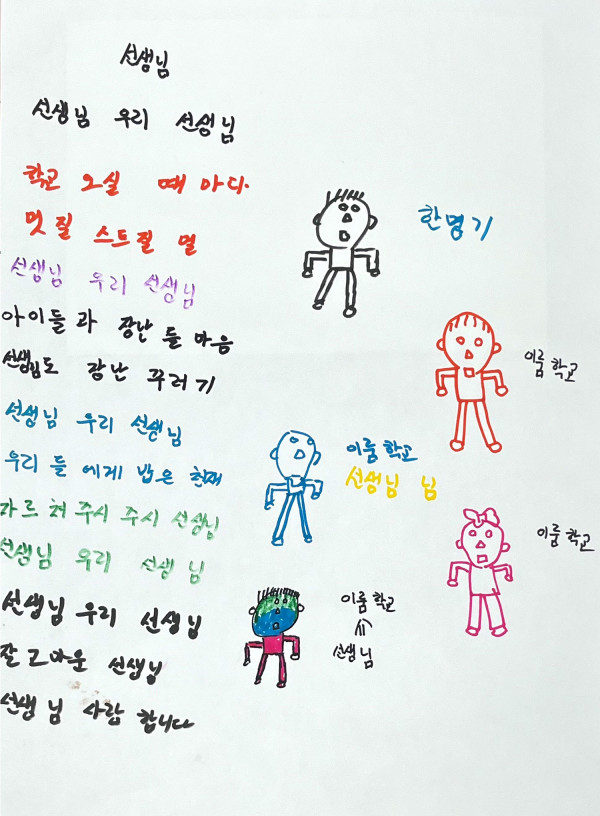 선생님
선생님 우리 선생님
학교 오실 때 마다.
멋질 스트질 멀
선생님 우리 선생님
아이들과 장난 들 마음
선생님도 장난 꾸러기
선생님 우리 선생님
우리 들 에게 밥은 천재
가르쳐 주시 주시 선생님
선생님 우리 선생 님
선생님 우리 선생님
잘 고마운 선생님
선생 님 사람 합니다
한명기
이룸 학교
이룸 학교
선생님 님
이룸 학교
이룸 학교
선생님